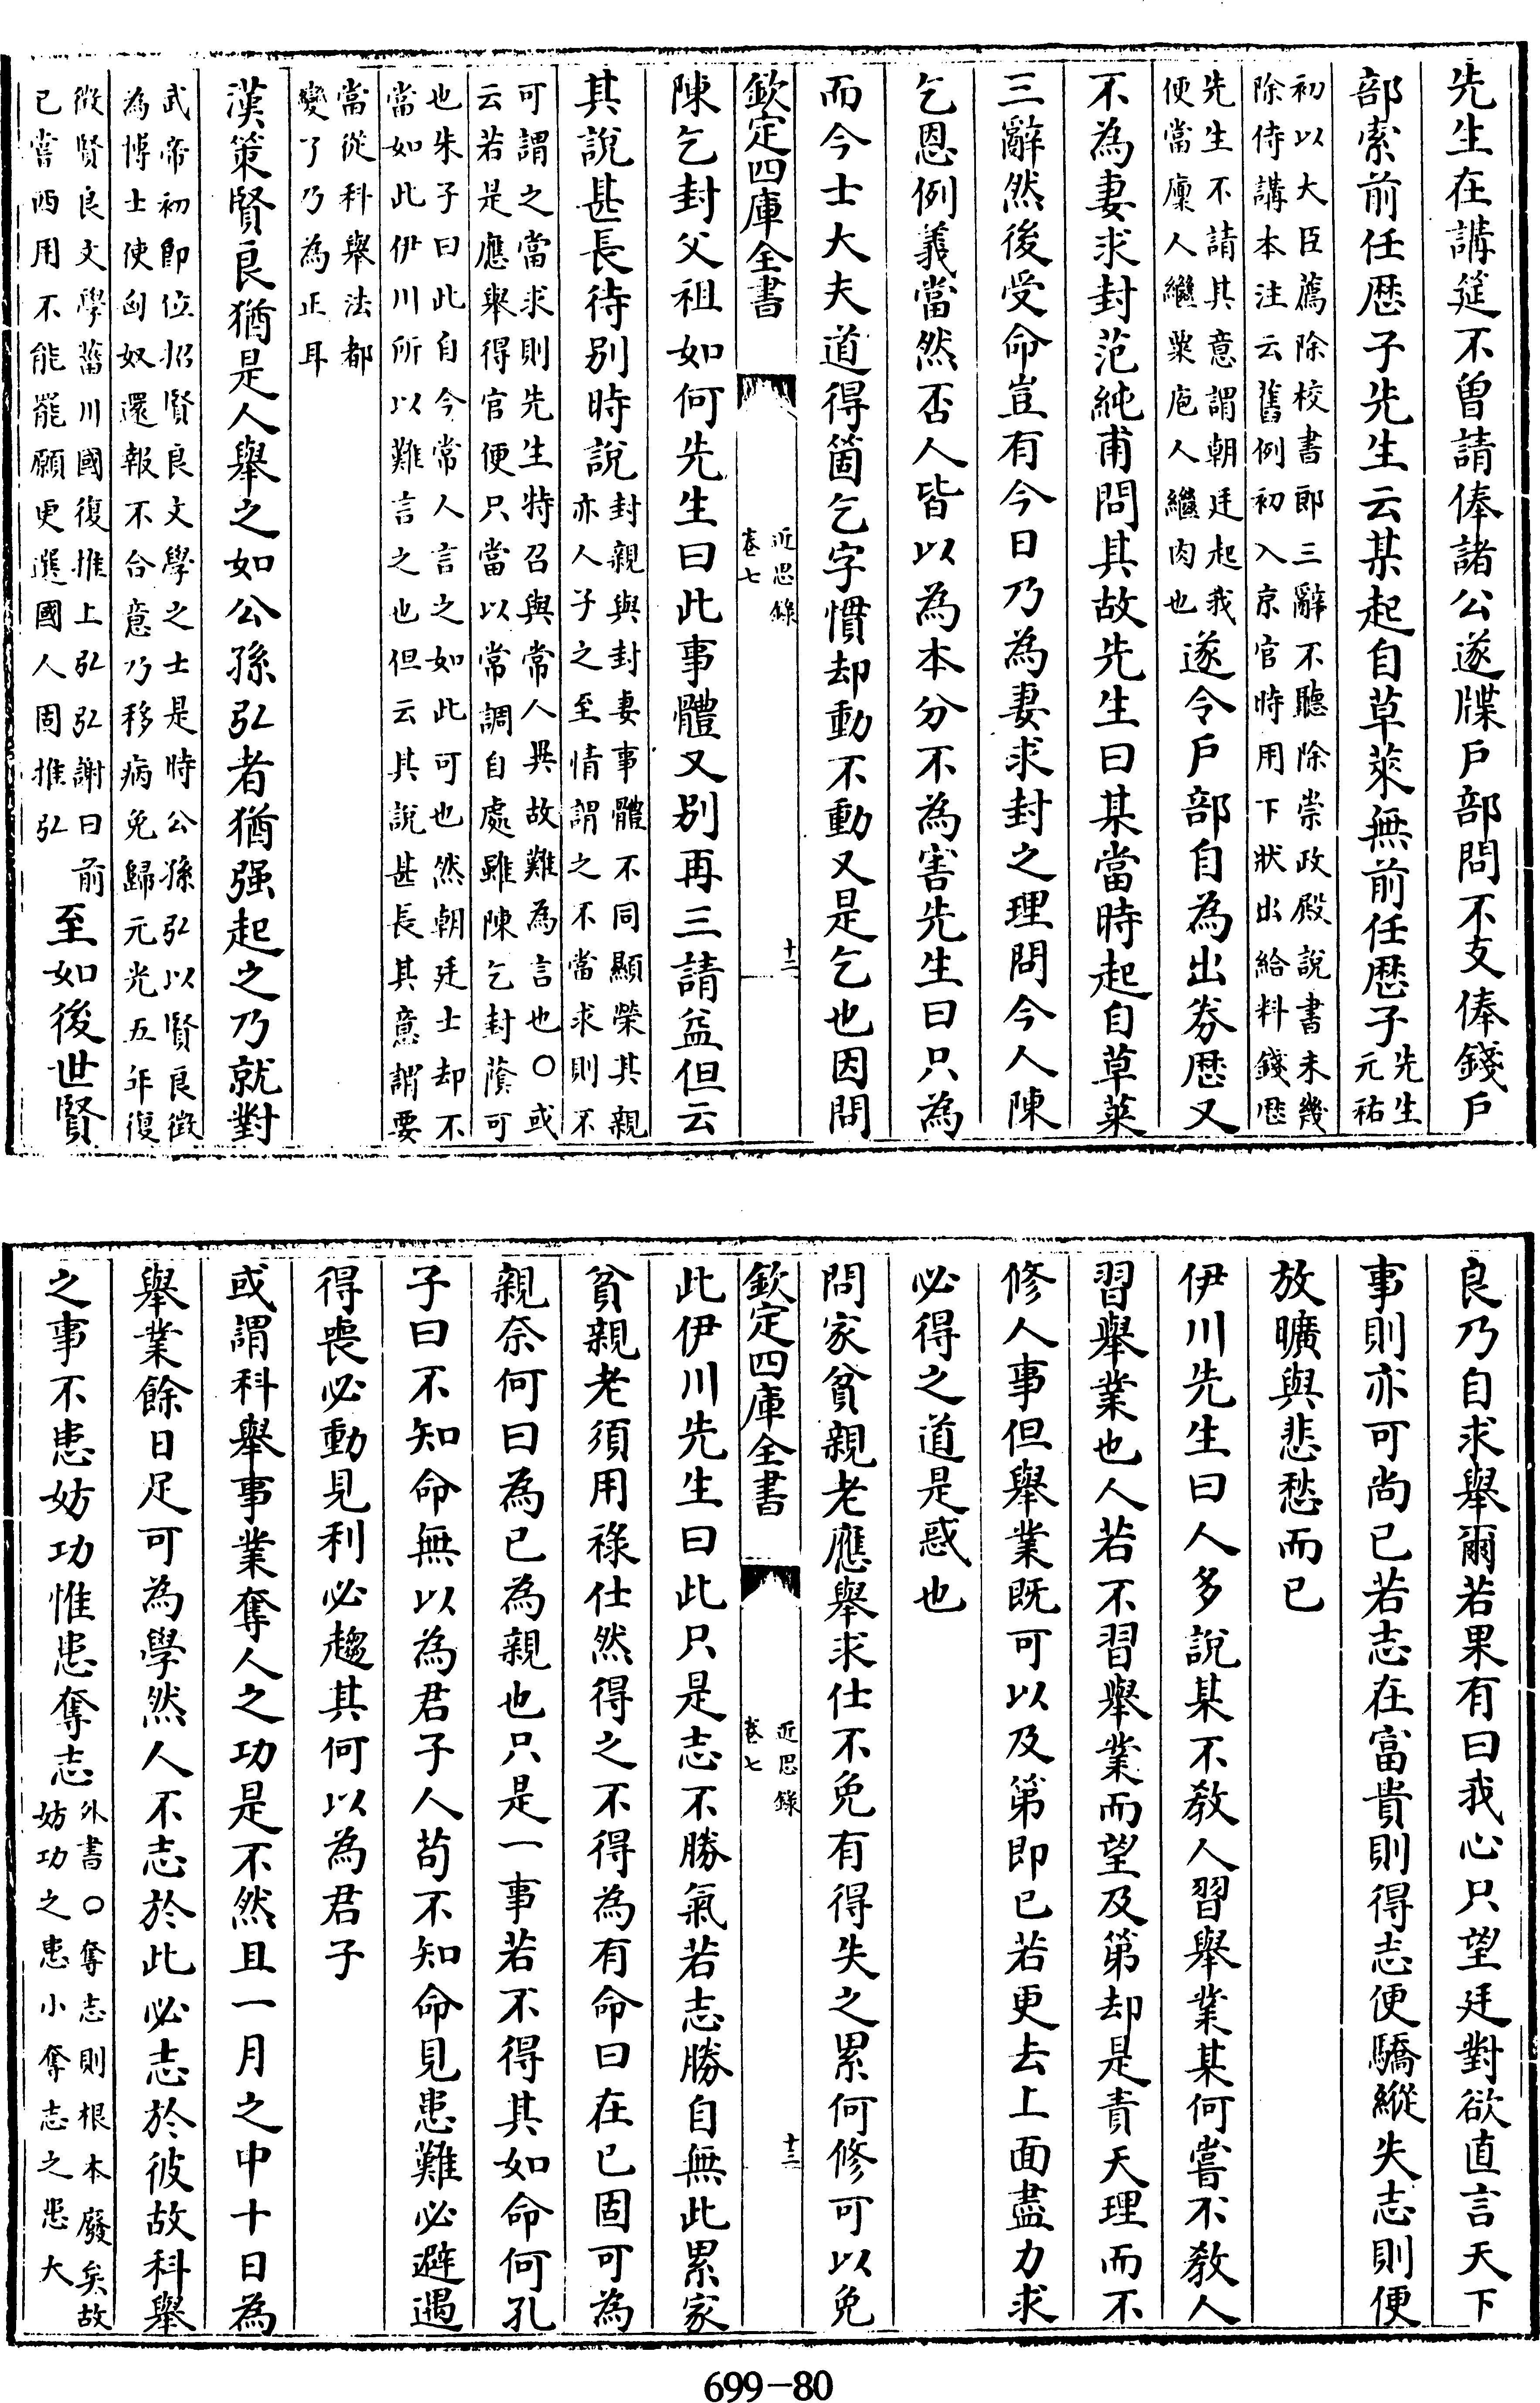 先生在講筵不曽請俸諸公遂牒户部問不支俸錢户
部索前任厯子先生云某起自草萊無前任厯子先生元祐
初以大臣薦除校書郎三辭不聽除崇政殿說書未幾
除侍講本注云舊例初入京官時用下狀出給料錢厯
先生不請其意謂朝廷起我
便當廩人繼粟庖人繼肉也
遂令户部自為出劵厯又
不為妻求封范純甫問其故先生曰某當時起自草萊
三辭然後受命豈有今日乃為妻求封之理問今人陳
乞恩例義當然否人皆以為本分不為害先生曰只為
而今士大夫道得箇乞字慣却動不動又是乞也因問
欽定四庫全書
近思錄
卷七
十二
陳乞封父祖如何先生曰此事體又别再三請益但云
其說甚長待别時說
封親與封妻事體不同顯榮其親
亦人子之至情謂之不當求則不
可謂之當求則先生特召與常人異故難為言也○或
云若是應舉得官便只當以常調自處雖陳乞封蔭可
也朱子曰此自今常人言之如此可也然朝廷士却不
當如此伊川所以難言之也但云其說甚長其意謂要
當從科舉法都
變了乃為正耳
漢策賢良猶是人舉之如公孫弘者猶强起之乃就對
武帝初即位招賢良文學之士是時公孫弘以賢良徵
為博士使匈奴還報不合意乃移病免歸元光五年復
徵賢良文學菑川國復推上弘弘謝曰前
已嘗西用不能罷願更選國人固推弘
至如後世賢
良乃自求舉爾若果有曰我心只望廷對欲直言天下
事則亦可尚已若志在富貴則得志便驕縱失志則便
放曠與悲愁而已
伊川先生曰人多說某不教人習舉業某何嘗不教人
習舉業也人若不習舉業而望及第却是責天理而不
修人事但舉業既可以及第即已若更去上面盡力求
必得之道是惑也
問家貧親老應舉求仕不免有得失之累何修可以免
欽定四庫全書
近思錄
卷七
十三
此伊川先生曰此只是志不勝氣若志勝自無此累家
貧親老須用祿仕然得之不得為有命曰在已固可為
親奈何曰為已為親也只是一事若不得其如命何孔
子曰不知命無以為君子人苟不知命見患難必避遇
得喪必動見利必趨其何以為君子
或謂科舉事業奪人之功是不然且一月之中十日為
舉業餘日足可為學然人不志於此必志於彼故科舉
之事不患妨功惟患奪志
外書○奪志則根本廢矣故
妨功之患小奪志之患大
699-80